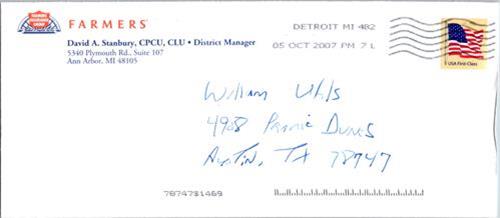 FARMERS
David A. Stanbury, CPCU, CLU • District Manager
5340 Plymouth Rd., Suite 107
Ann Arbor, MI 48105
DETROIT MI 482
05 OCT 2007 PM 7 L
USA First-Class
William
4908 Dunes
Austin, TX 78747
78747$1469